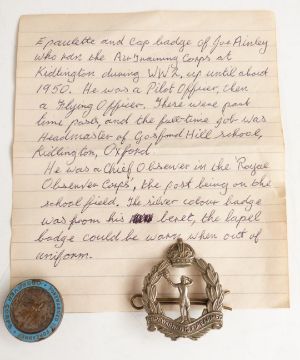 Epaulette and Cap badge of Joe Ainley
who ran the Air Training Corps at
Kidlington during WW2, up until about
1950. He was a Pilot Officer, then
a Flying Officer. These were part
time posts, and the full-time job was
Headmaster of Gosford Hill school,
Kidlington, Oxford.
He was a Chief Observer in the 'Royal
Observer Corps', the post being on the
school field. The silver colour badge
was from his beret, the lapel
badge could be worn when out of
uniform.